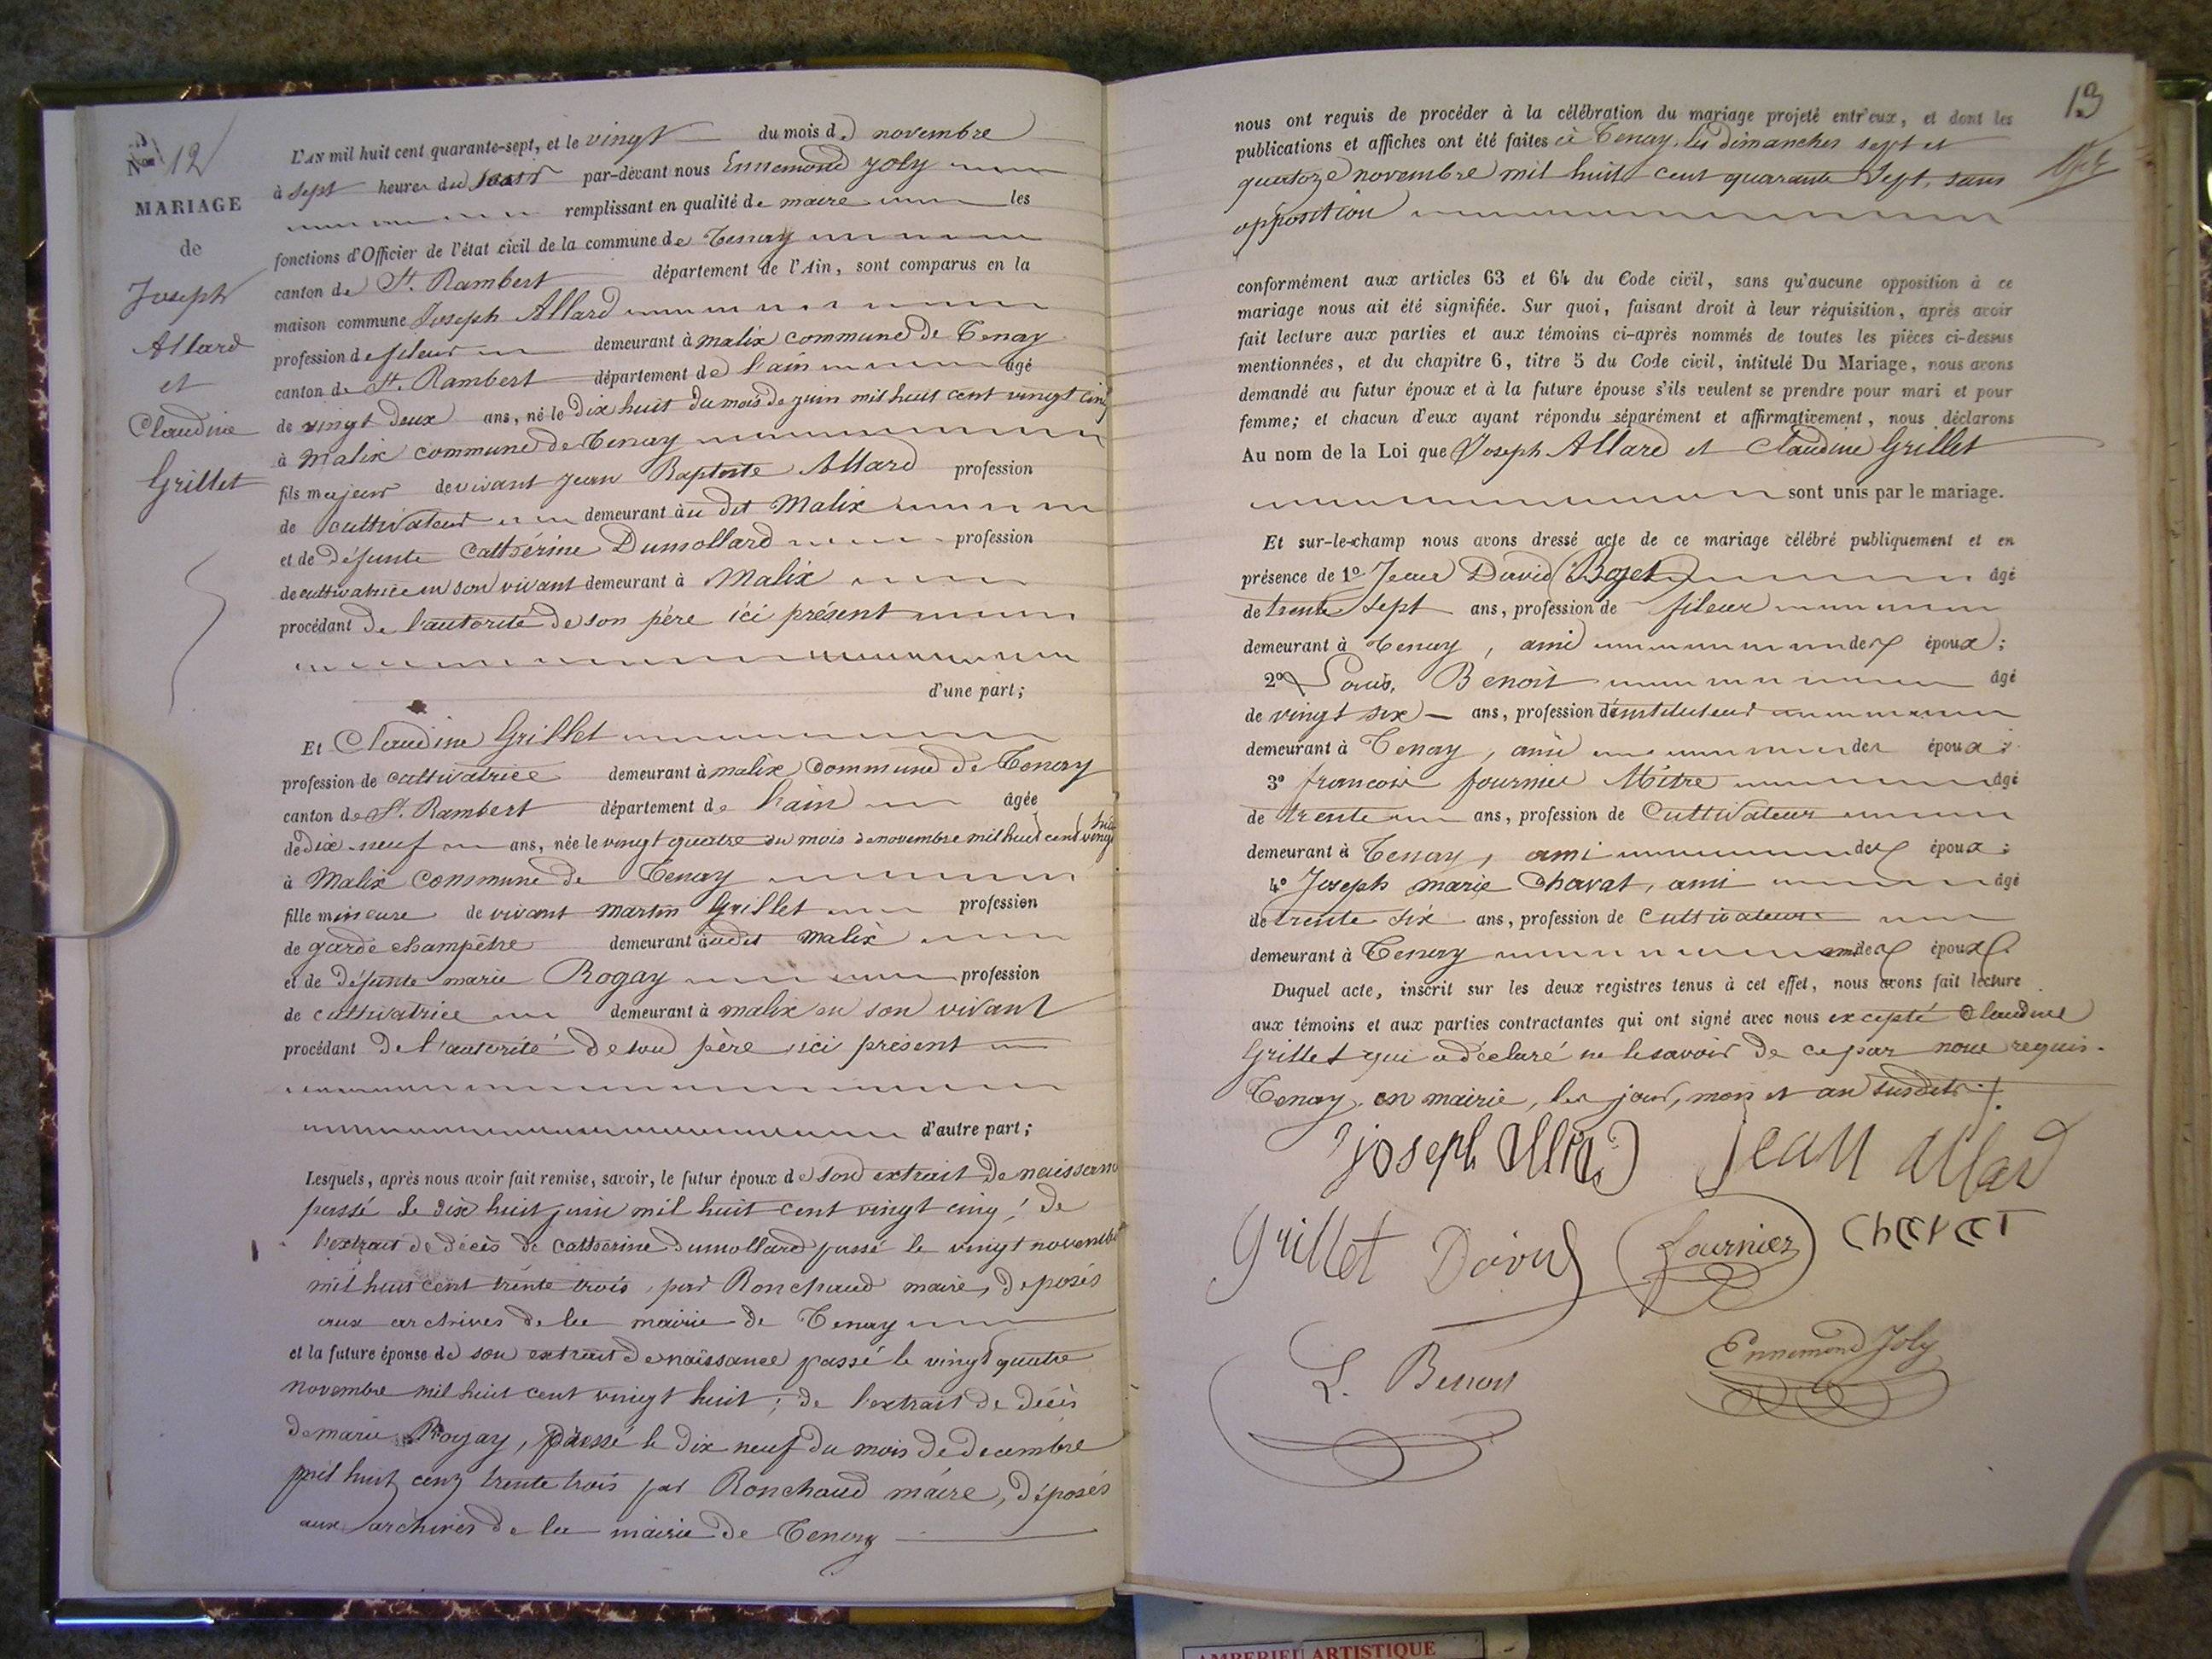 N° 12
MARIAGE
de
Joseph
Allard
et
Claudine
Grillet
L'AN mil huit cent quarante-sept, et le vingt du mois de novembre
à sept heures du soir par-devant nous Ennemond Joly
remplissant en qualité de maire les
fonctions d'Officier de l'état civil de la commune de Tenay
canton de St. Rambert département de l'Ain, sont comparus en la
maison commune Joseph Allard
profession de fileur demeurant à malix commune de Tenay
canton de St. Rambert département de l'ain âgé
de vingt deux ans, né le dix huit du mois de juin mil huit cent vingt cinq
à Malix commune de Tenay
fils majeur de vivant Jean Baptiste Allard profession
de cultivateur demeurant au dit Malix
et de défunte Cathérine Dumollard profession
de cultivatrice en son vivant demeurant à Malix
procédant de l'autorité de son père ici présent
d'une part;
Et Claudine Grillet
profession de cultivatrice demeurant à malix commune de Tenay
canton de St. Rambert département de l'ain âgée
de dix-neuf ans, née le vingt quatre du mois de novembre mil huit cent vingt huit
à Malix commune de Tenay
fille mineure de vivant Martin Grillet profession
de garde champêtre demeurant audit malix
et de défunte marie Rogay profession
de cultivatrice demeurant à malix en son vivant
procédant de l'autorité de son père ici présent
d'autre part;
Lesquels, après nous avoir fait remise, savoir, le futur époux de son extrait de naissance
passé le dix huit juin mil huit cent vingt cinq; de
l'extrait de décès de Catherine Dumollard passé le vingt novembre
mil huit cent trente trois, par Ronchaud maire, déposés
aux archives de la mairie de Tenay
et la future épouse de son extrait de naissance passé le vingt quatre
novembre mil huit cent vingt huit; de l'extrait de décès
de marie Rogay, passé le dix neuf du mois de decembre
mil huit cent trente trois par Ronchaud maire, déposés
aux archives de la mairie de Tenay
13
nous ont requis de procéder à la célébration du mariage projeté entr'eux, et dont les
publications et affiches ont été faites à Tenay, les dimanches sept et
quatorze novembre mil huit cent quarante sept, sans
opposition
conformément aux articles 63 et 64 du Code civil, sans qu'aucune opposition à ce
mariage nous ait été signifiée. Sur quoi, faisant droit à leur réquisition, après avoir
fait lecture aux parties et aux témoins ci-après nommés de toutes les pièces ci-dessus
mentionnées, et du chapitre 6, titre 5 du Code civil, intitulé Du Mariage, nous avons
demandé au futur époux et à la future épouse s'ils veulent se prendre pour mari et pour
femme; et chacun d'eux ayant répondu séparément et affirmativement, nous déclarons
Au nom de la Loi que Joseph Allard et Claudine Grillet
sont unis par le mariage.
Et sur-le-champ nous avons dressé acte de ce mariage célébré publiquement et en
présence de 1° Jean David (Bojet) âgé
de trente sept ans, profession de fileur
demeurant à Tenay, ami des époux;
2° Louis Benoit âgé
de vingt six ans, profession d'instituteur
demeurant à Tenay, ami des époux;
3° françois fournier Mitre âgé
de trente ans, profession de cultivateur
demeurant à Tenay, ami des époux;
4° Joseph marie Chavat, ami âgé
de trente six ans, profession de cultivateur
demeurant à Tenay des époux.
Duquel acte, inscrit sur les deux registres tenus à cet effet, nous avons fait lecture
aux témoins et aux parties contractantes qui ont signé avec nous excepté Claudine
Grillet qui a déclaré ne le savoir de ce par nous requis.
Tenay, en mairie, les jour, mois et an susdits.
joseph allard jean allard
grillet David fournier chavat
L. Benoit Ennemond Joly
AMBERIEU ARTISTIQUE